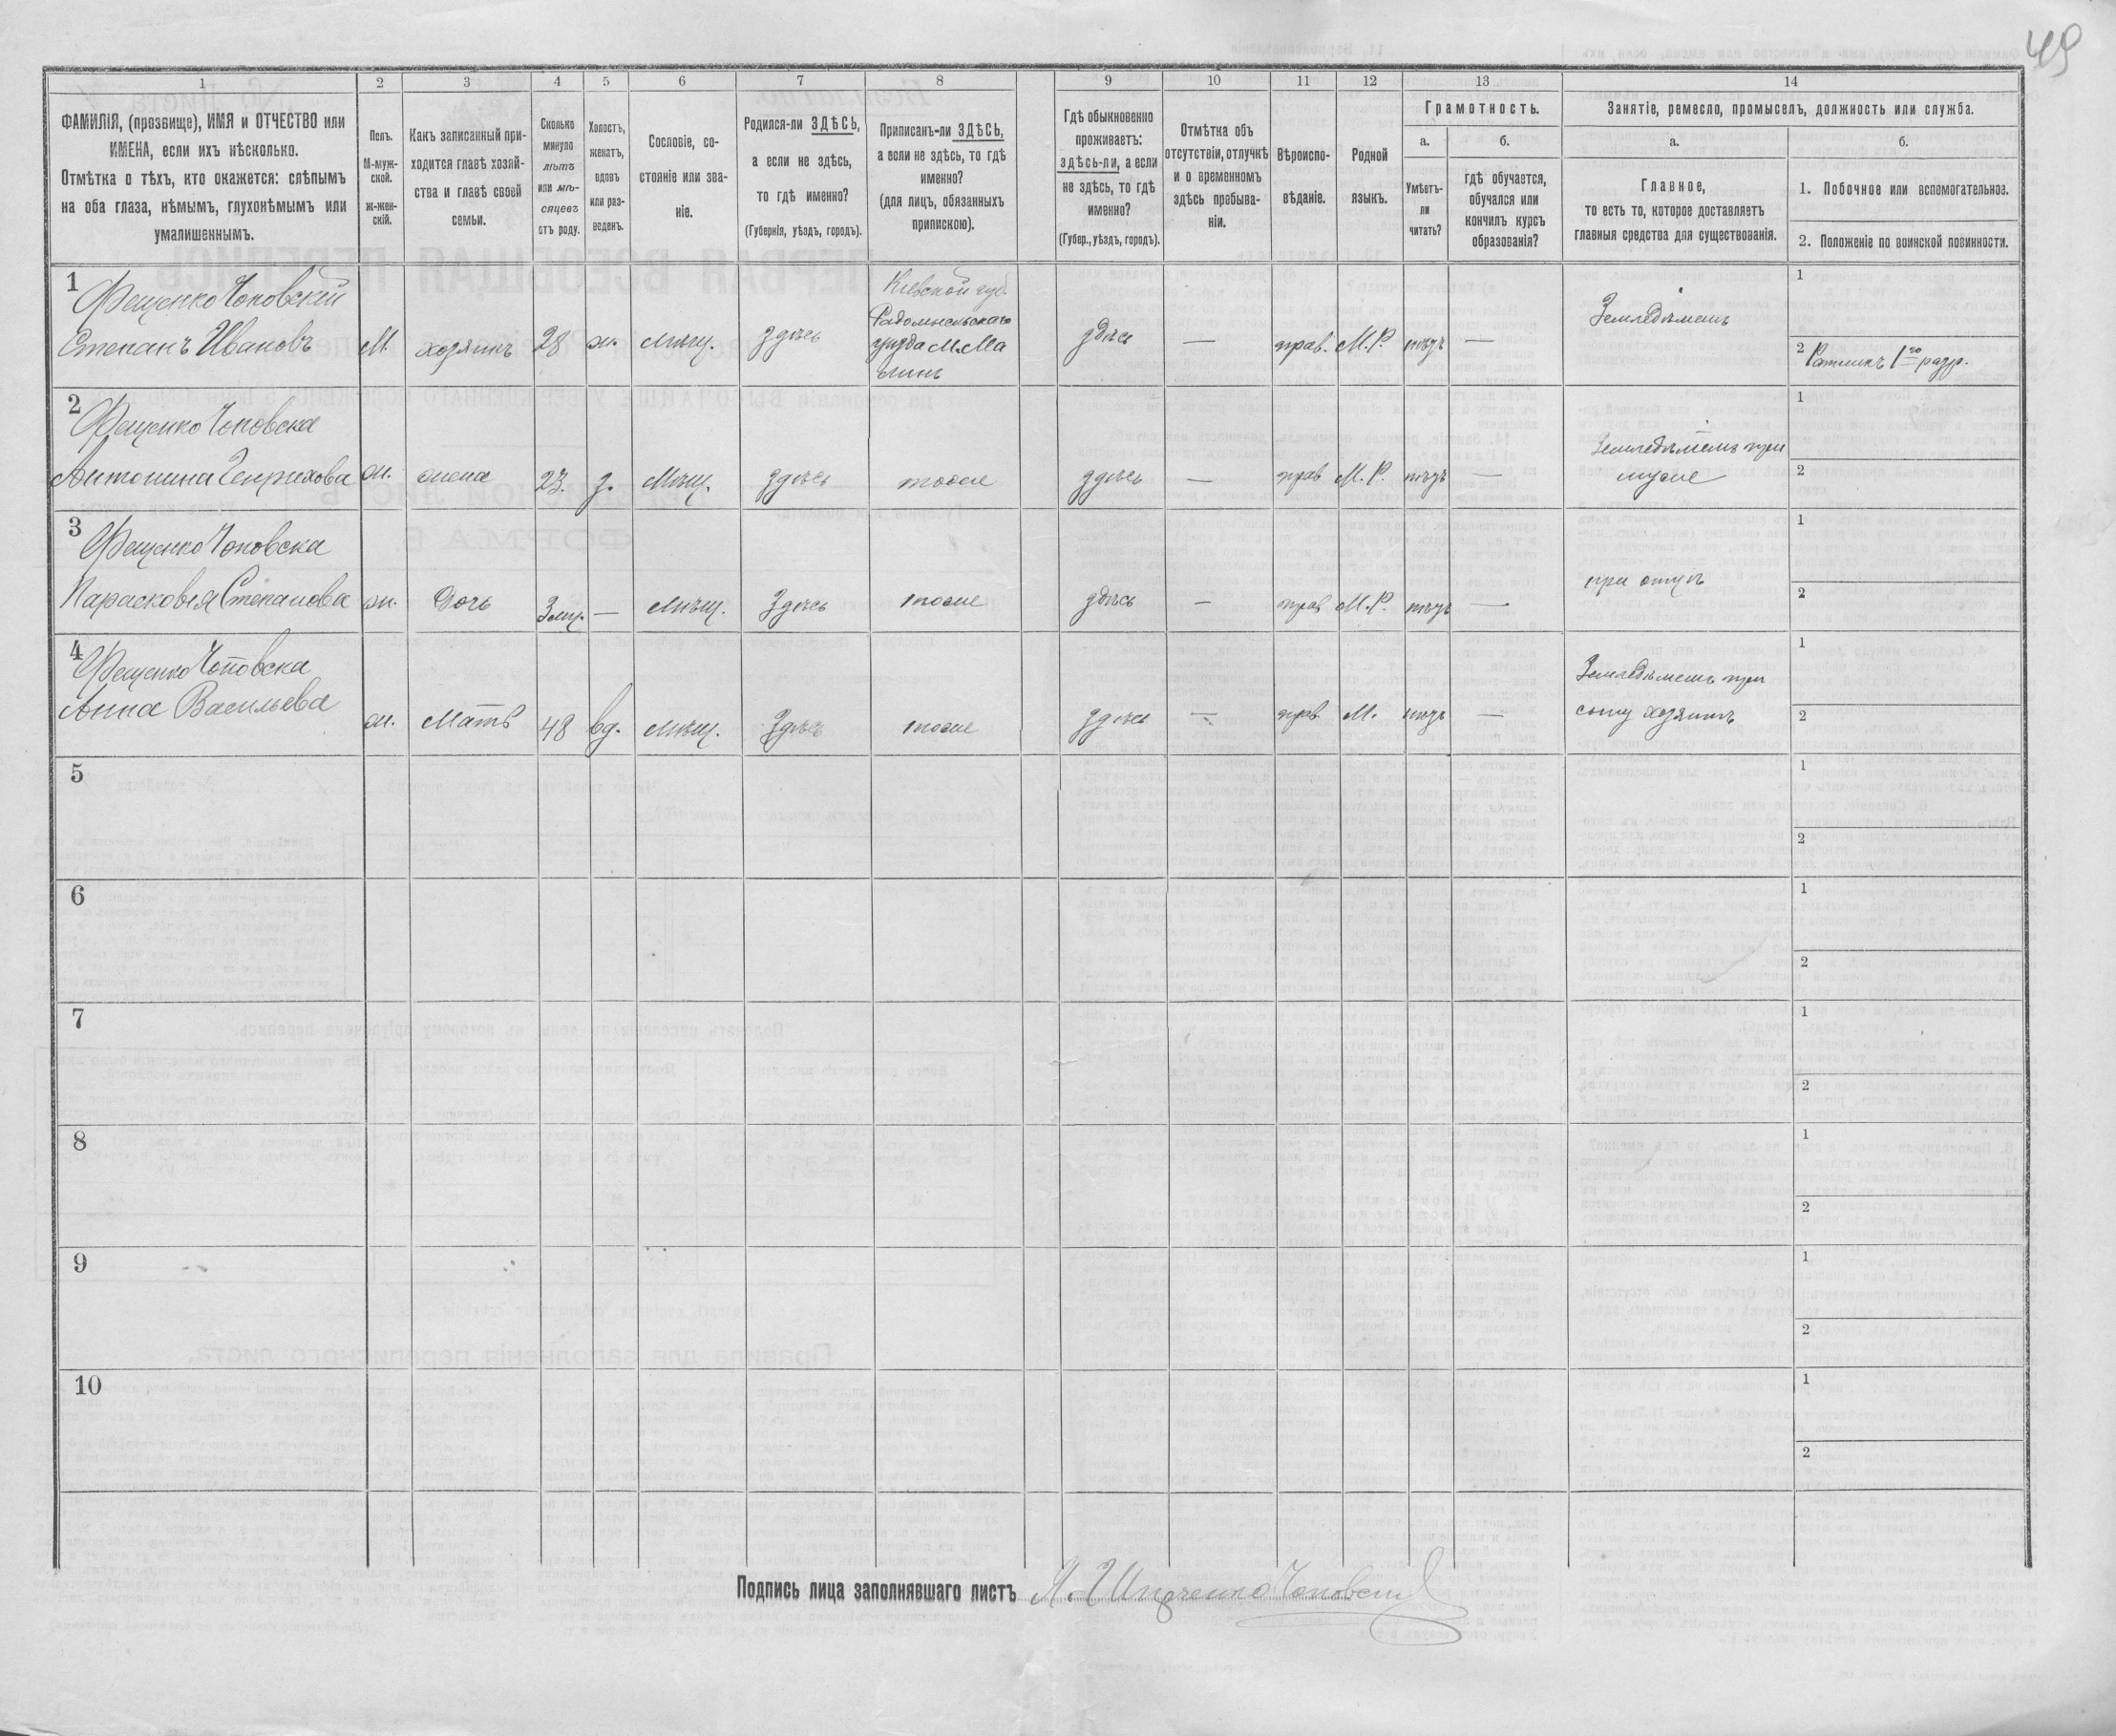 49
1 2 3 4 5 6 7 8 9 10 11 12 13 14
ФАМИЛІЯ, (прозвище), ИМЯ и ОТЧЕСТВО или
ИМЕНА, если ихъ нѣсколько.
Отмѣтка о тѣхъ, кто окажется: слѣпымъ
на оба глаза, нѣмымъ, глухонѣмымъ или
умалишеннымъ.
Полъ.
М-муж-
ской.
ж-жен-
скій.
Какъ записанный при-
ходится главѣ хозяй-
ства и главѣ своей
семьи.
Сколько
минуло
лѣтъ
или мѣ-
сяцевъ
отъ роду.
Холостъ,
женатъ,
вдовъ
или раз-
веденъ.
Сословіе, со-
стояніе или зва-
ніе.
Родился-ли ЗДѢСЬ,
а если не здѣсь,
то гдѣ именно?
(Губернія, уѣздъ, городъ).
Приписанъ-ли ЗДѢСЬ,
а если не здѣсь, то гдѣ
именно?
(для лицъ, обязанныхъ
припискою).
Гдѣ обыкновенно
проживаетъ:
здѣсь-ли, а если
не здѣсь, то гдѣ
именно?
(Губер., уѣздъ, городъ).
Отмѣтка объ
отсутствіи, отлучкѣ
и о временномъ
здѣсь пребыва-
ніи.
Вѣроиспо-
вѣданіе.
Родной
языкъ.
Грамотность.
а.
Умѣетъ-
ли
читать?
б.
гдѣ обучается,
обучался или
кончилъ курсъ
образованія?
Занятіе, ремесло, промыселъ, должность или служба.
а.
Главное,
то есть то, которое доставляетъ
главныя средства для существованія.
б.
1. Побочное или вспомогательное.
2. Положеніе по воинской повинности.
1
Фещенко Чоповскій
Степанъ Ивановъ
М.
хозяинъ
28
ж.
мѣщ.
здѣсь
Кіевской губ.
Радомысльскаго
уѣзда М. Ма
линъ
здѣсь
—
прав.
М.Р.
нѣтъ
—
Земледѣлецъ
1
2 Ратникъ 1го разр.
2
Фещенко Чоповска
Антонина Генрихова
ж.
жена
23.
з.
Мѣщ.
здѣсь
тоже
здѣсь
—
прав
М.Р.
нѣтъ
—
Земледѣлецъ при
мужѣ
1
2
3
Фещенко Чоповска
Парасковея Степанова
ж.
Дочь
3 мц.
—
Мѣщ.
Здѣсь
тоже
здѣсь
—
прав
М.Р.
нѣтъ
—
при отцѣ
1
2
4
Фещенко Чоповска
Анна Васильева
ж.
Мать
48
вд.
мѣщ.
Здѣсь
тоже
здѣсь
—
прав
М.
нѣтъ
—
Земледѣлецъ при
сыну хозяинъ
1
2
5
1
2
6
1
2
7
1
2
8
1
2
9
1
2
10
1
2
Подпись лица заполнявшаго листъ